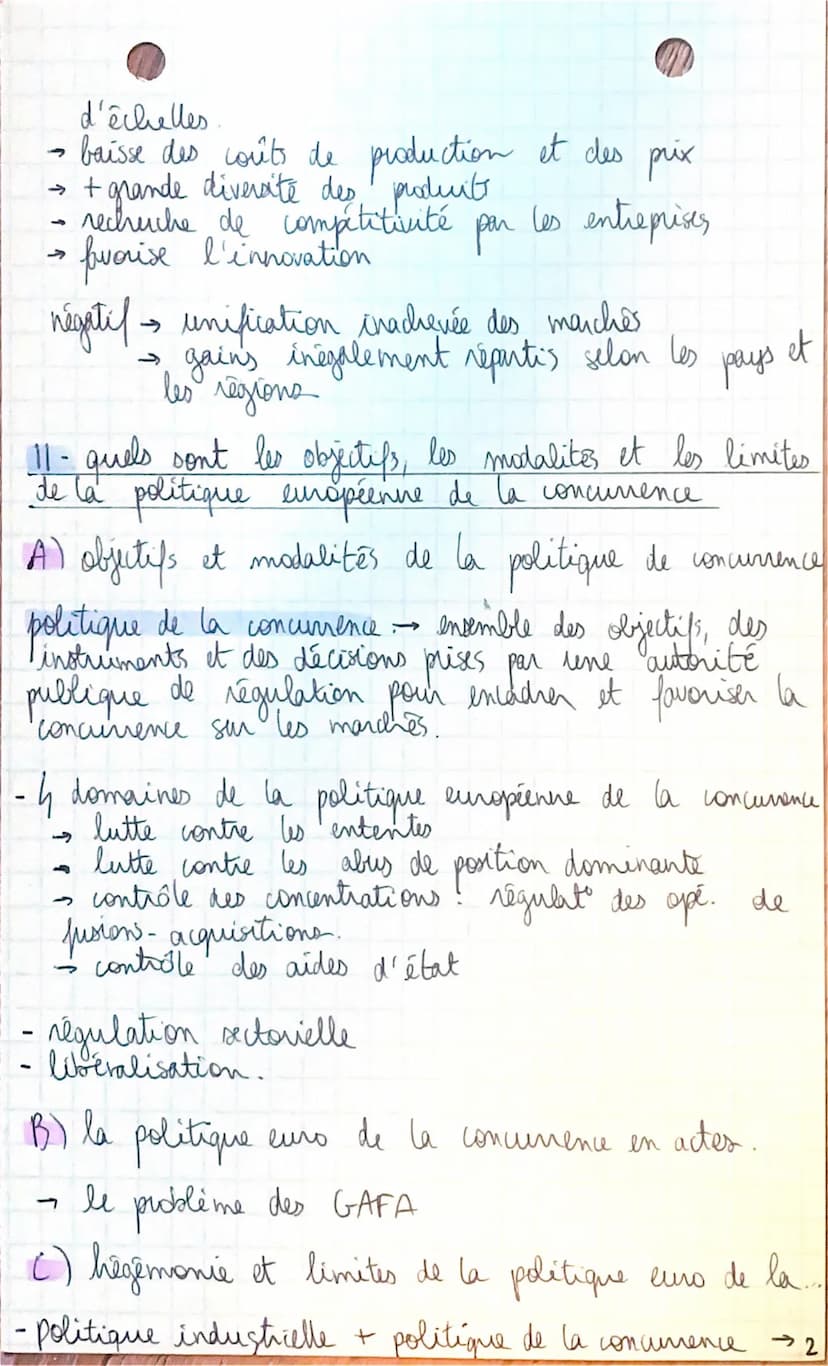 d'échelles.
→ baisse des coûts de production et des prix
→ + grande diversité des produits
→ recherche de compétitivité par les entreprises
→ favorise l'innovation
négatif → unification inachevée des marchés
→ gains inégalement répartis selon les pays et
les régions
II - quels sont les objectifs, les modalités et les limites
de la politique européenne de la concurrence
A) objectifs et modalités de la politique de concurrence
politique de la concurrence → ensemble des objectifs, des
instruments et des décisions prises par une autorité
publique de régulation pour encadrer et favoriser la
concurrence sur les marchés.
- 4 domaines de la politique européenne de la concurrence
→ lutte contre les ententes
→ lutte contre les abus de position dominante
→ contrôle des concentrations : régulat° des opé. de
fusions - acquisitions.
→ contrôle des aides d'état
- régulation sectorielle
- libéralisation.
B) la politique euro de la concurrence en actes.
→ le problème des GAFA
C) hégémonie et limites de la politique euro de la...
- politique industrielle + politique de la concurrence → 2